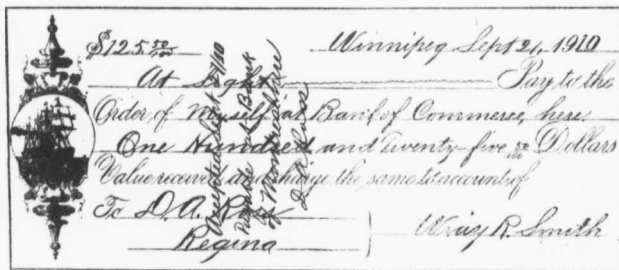 $125 50/100 Winnipeg Sept 21, 1910
At Sight Pay to the
Order of Myself at Bank of Commerce, here
One Hundred and Twenty five 50/100 Dollars
Value received and charge the same to account of
To D. A. Ross
Regina
Wray R. Smith
Accepted Sept 27/10
Payable at Bank
of Montreal here
D. A. Ross